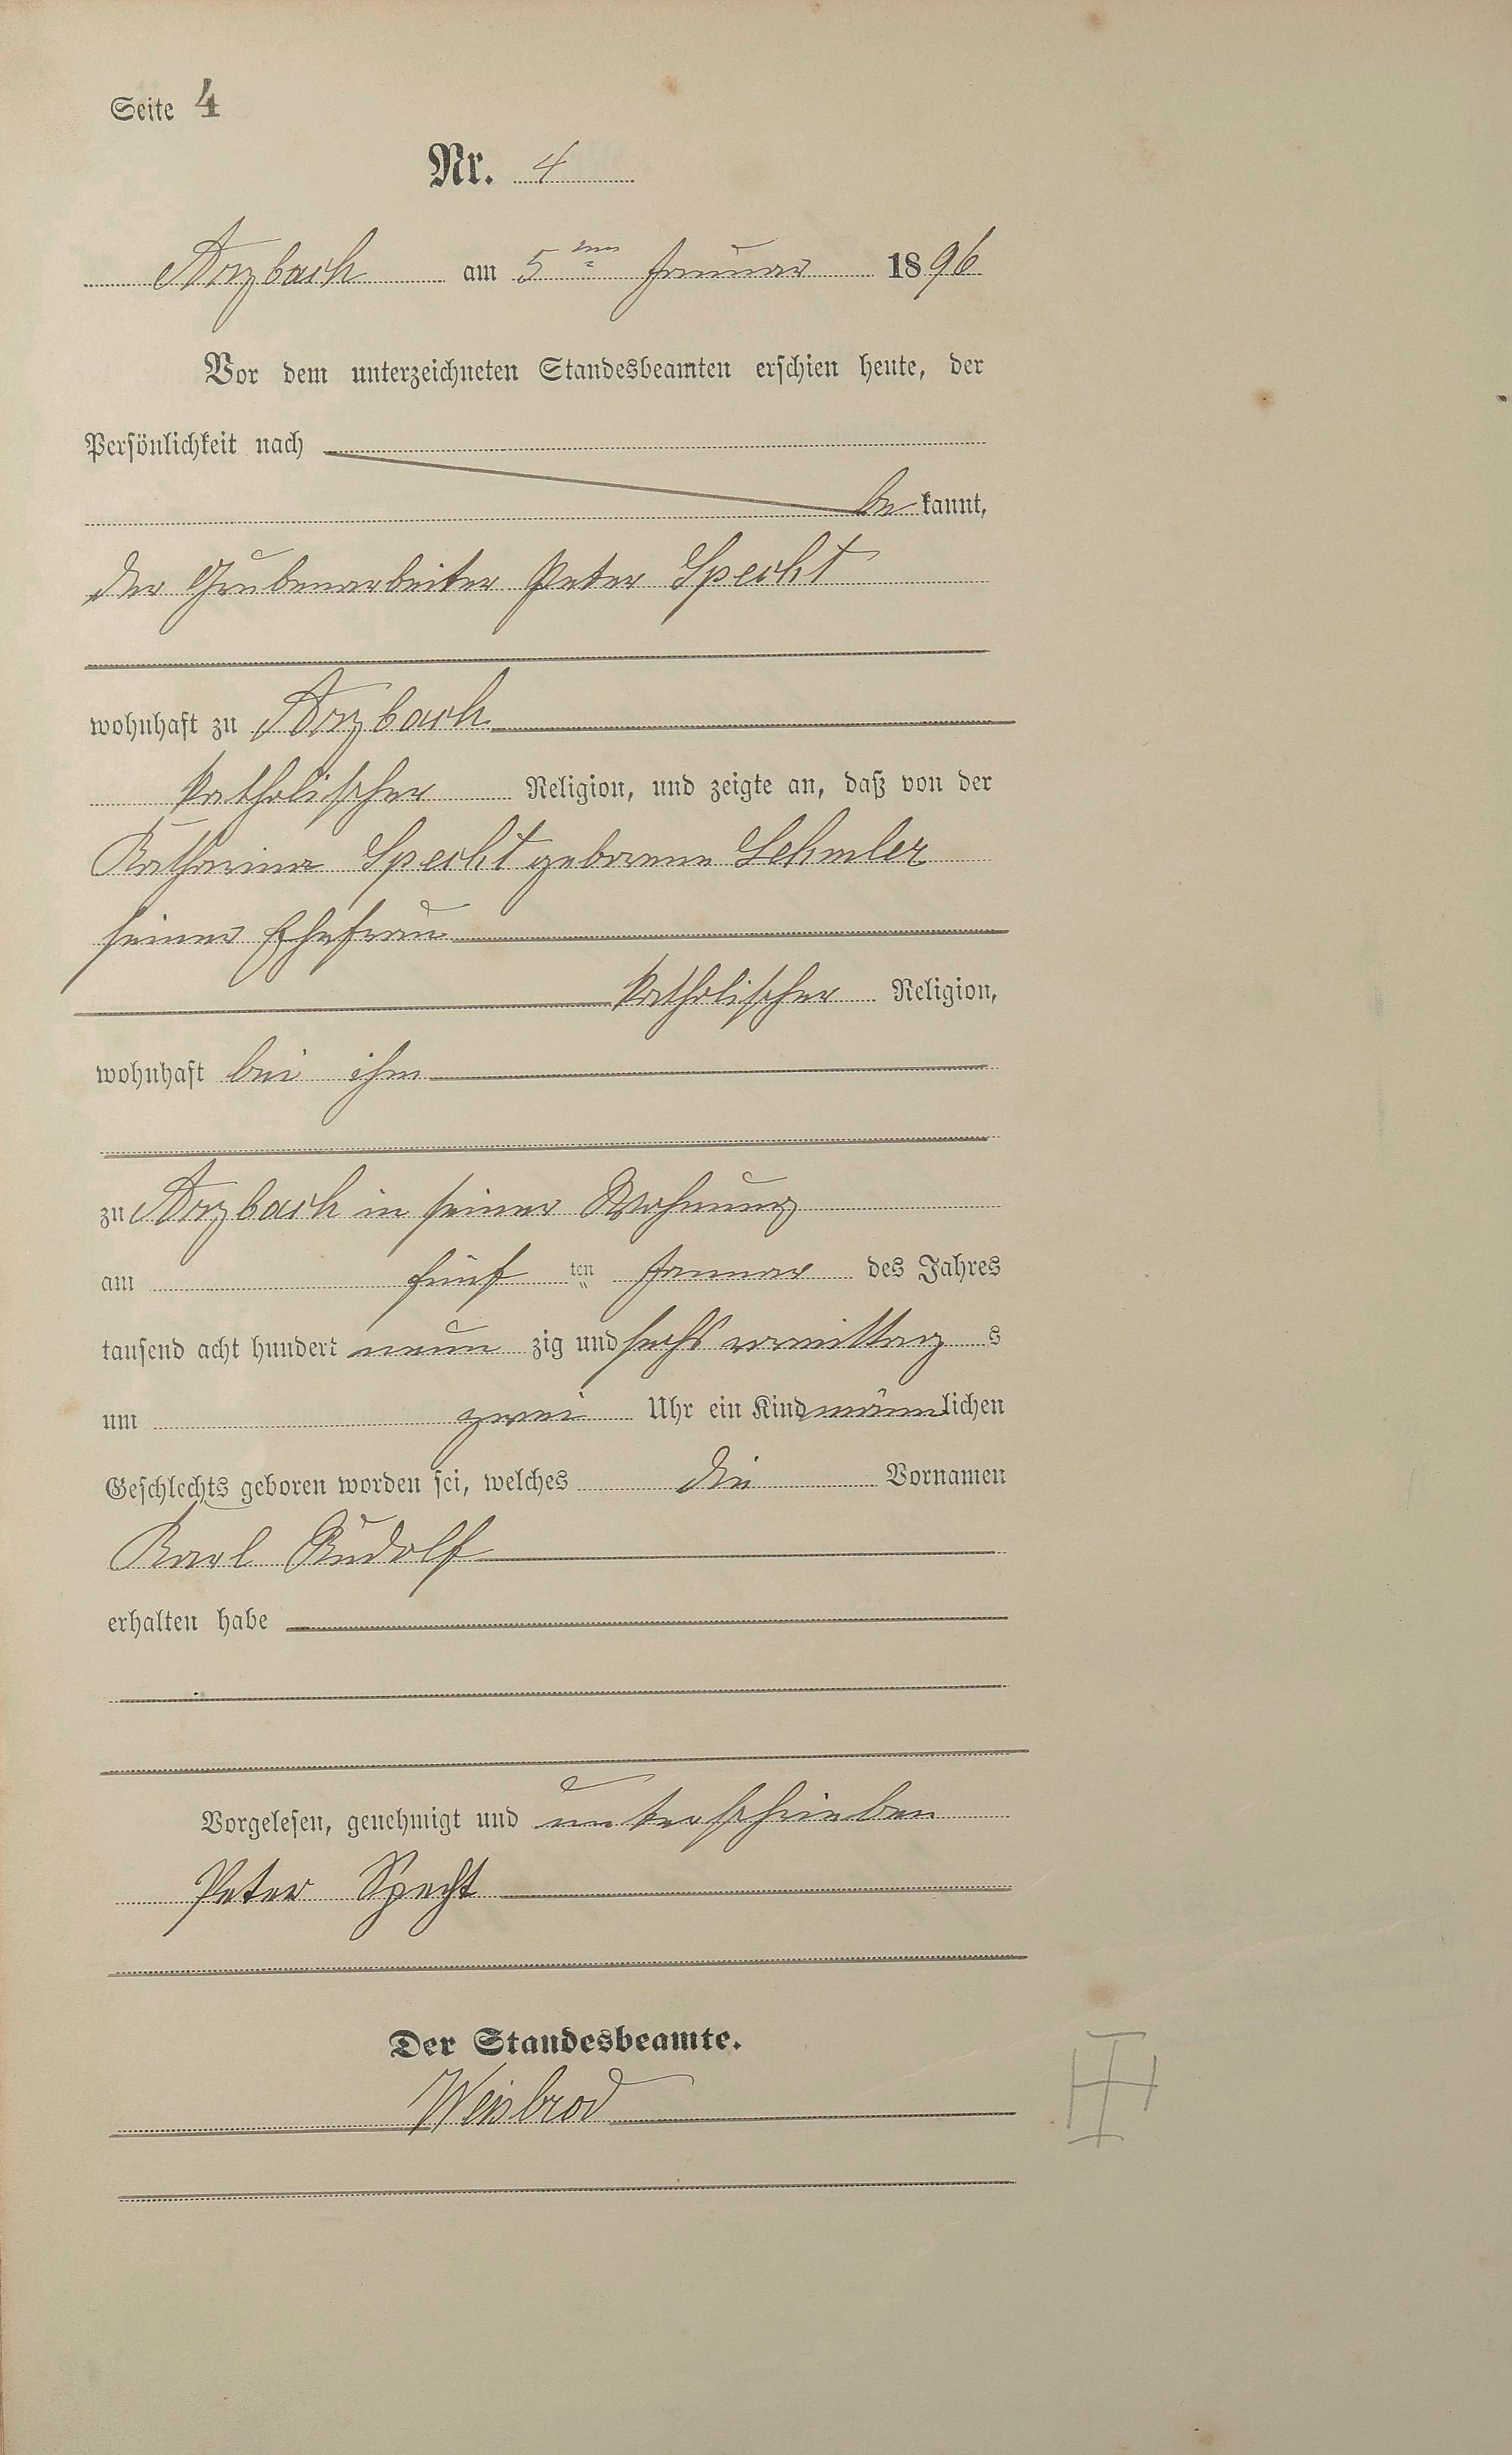 Seite 4
Nr. 4
Arzbach am 5ten Januar 1896
Vor dem unterzeichneten Standesbeamten erschien heute, der
Persönlichkeit nach
be kannt,
der Grubenarbeiter Peter Specht
wohnhaft zu Arzbach
katholischer Religion, und zeigte an, daß von der
Katharina Specht geborene Lehmler
seiner Ehefrau
katholischer Religion,
wohnhaft bei ihm
zu Arzbach in seiner Wohnung
am fünf ten Januar des Jahres
tausend acht hundert neun zig und sechs vormittag s
um zwei Uhr ein Kind männlichen
Geschlechts geboren worden sei, welches die Vornamen
Karl Rudolf
erhalten habe
Vorgelesen, genehmigt und unterschrieben
Peter Specht
Der Standesbeamte.
Weisbrod